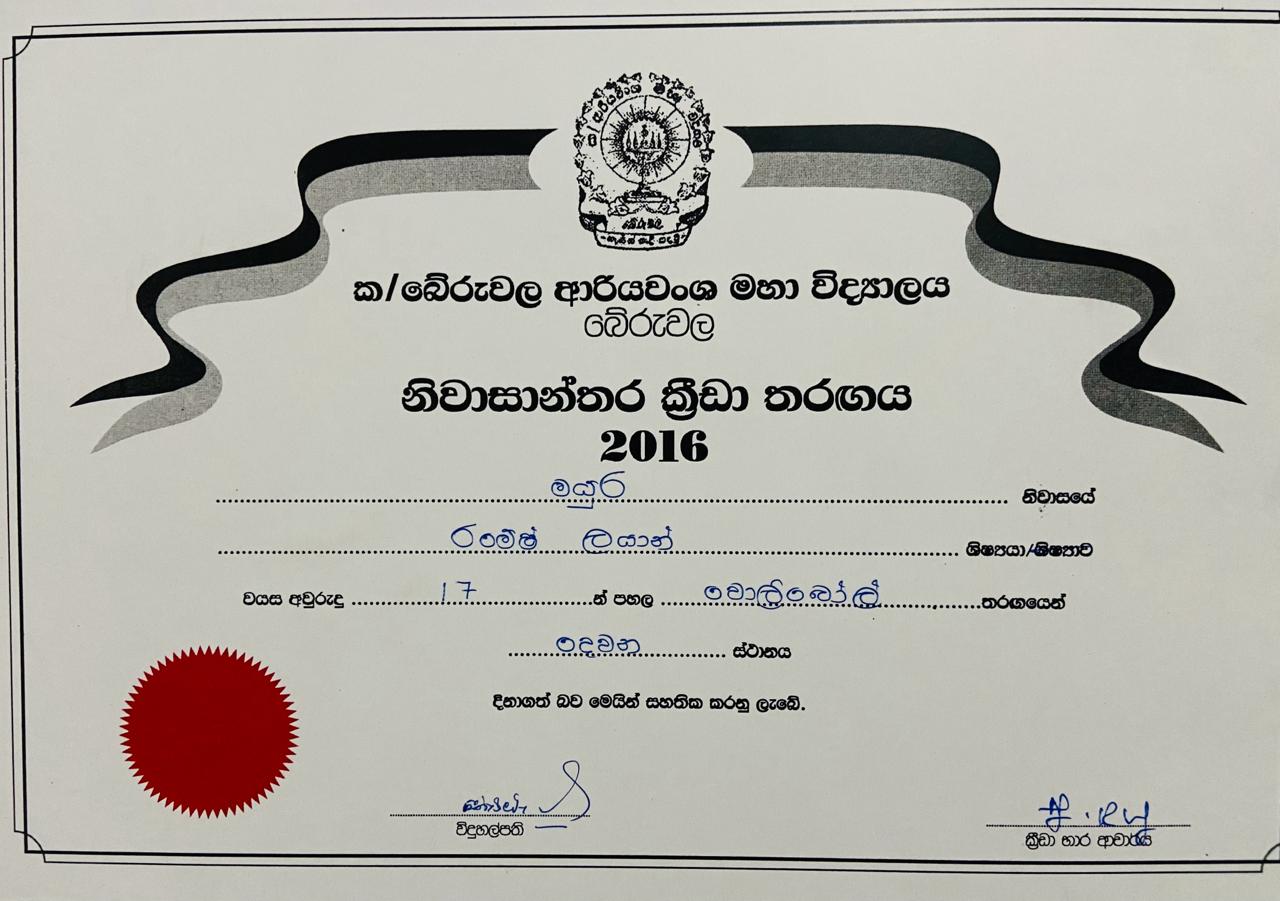 බේරුවල
ක/බේරුවල ආරියවංශ මහා විද්‍යාලය
බේරුවල
නිවාසාන්තර ක්‍රීඩා තරඟය
2016
මයුර නිවාසයේ
රමේෂ් ලයාන් ශිෂ්‍යයා/ශිෂ්‍යාව
වයස අවුරුදු 17 න් පහල වොලිබෝල් තරඟයෙන්
දෙවන ස්ථානය
දිනාගත් බව මෙයින් සහතික කරනු ලැබේ.
විදුහල්පති
ක්‍රීඩා භාර ආචාර්ය